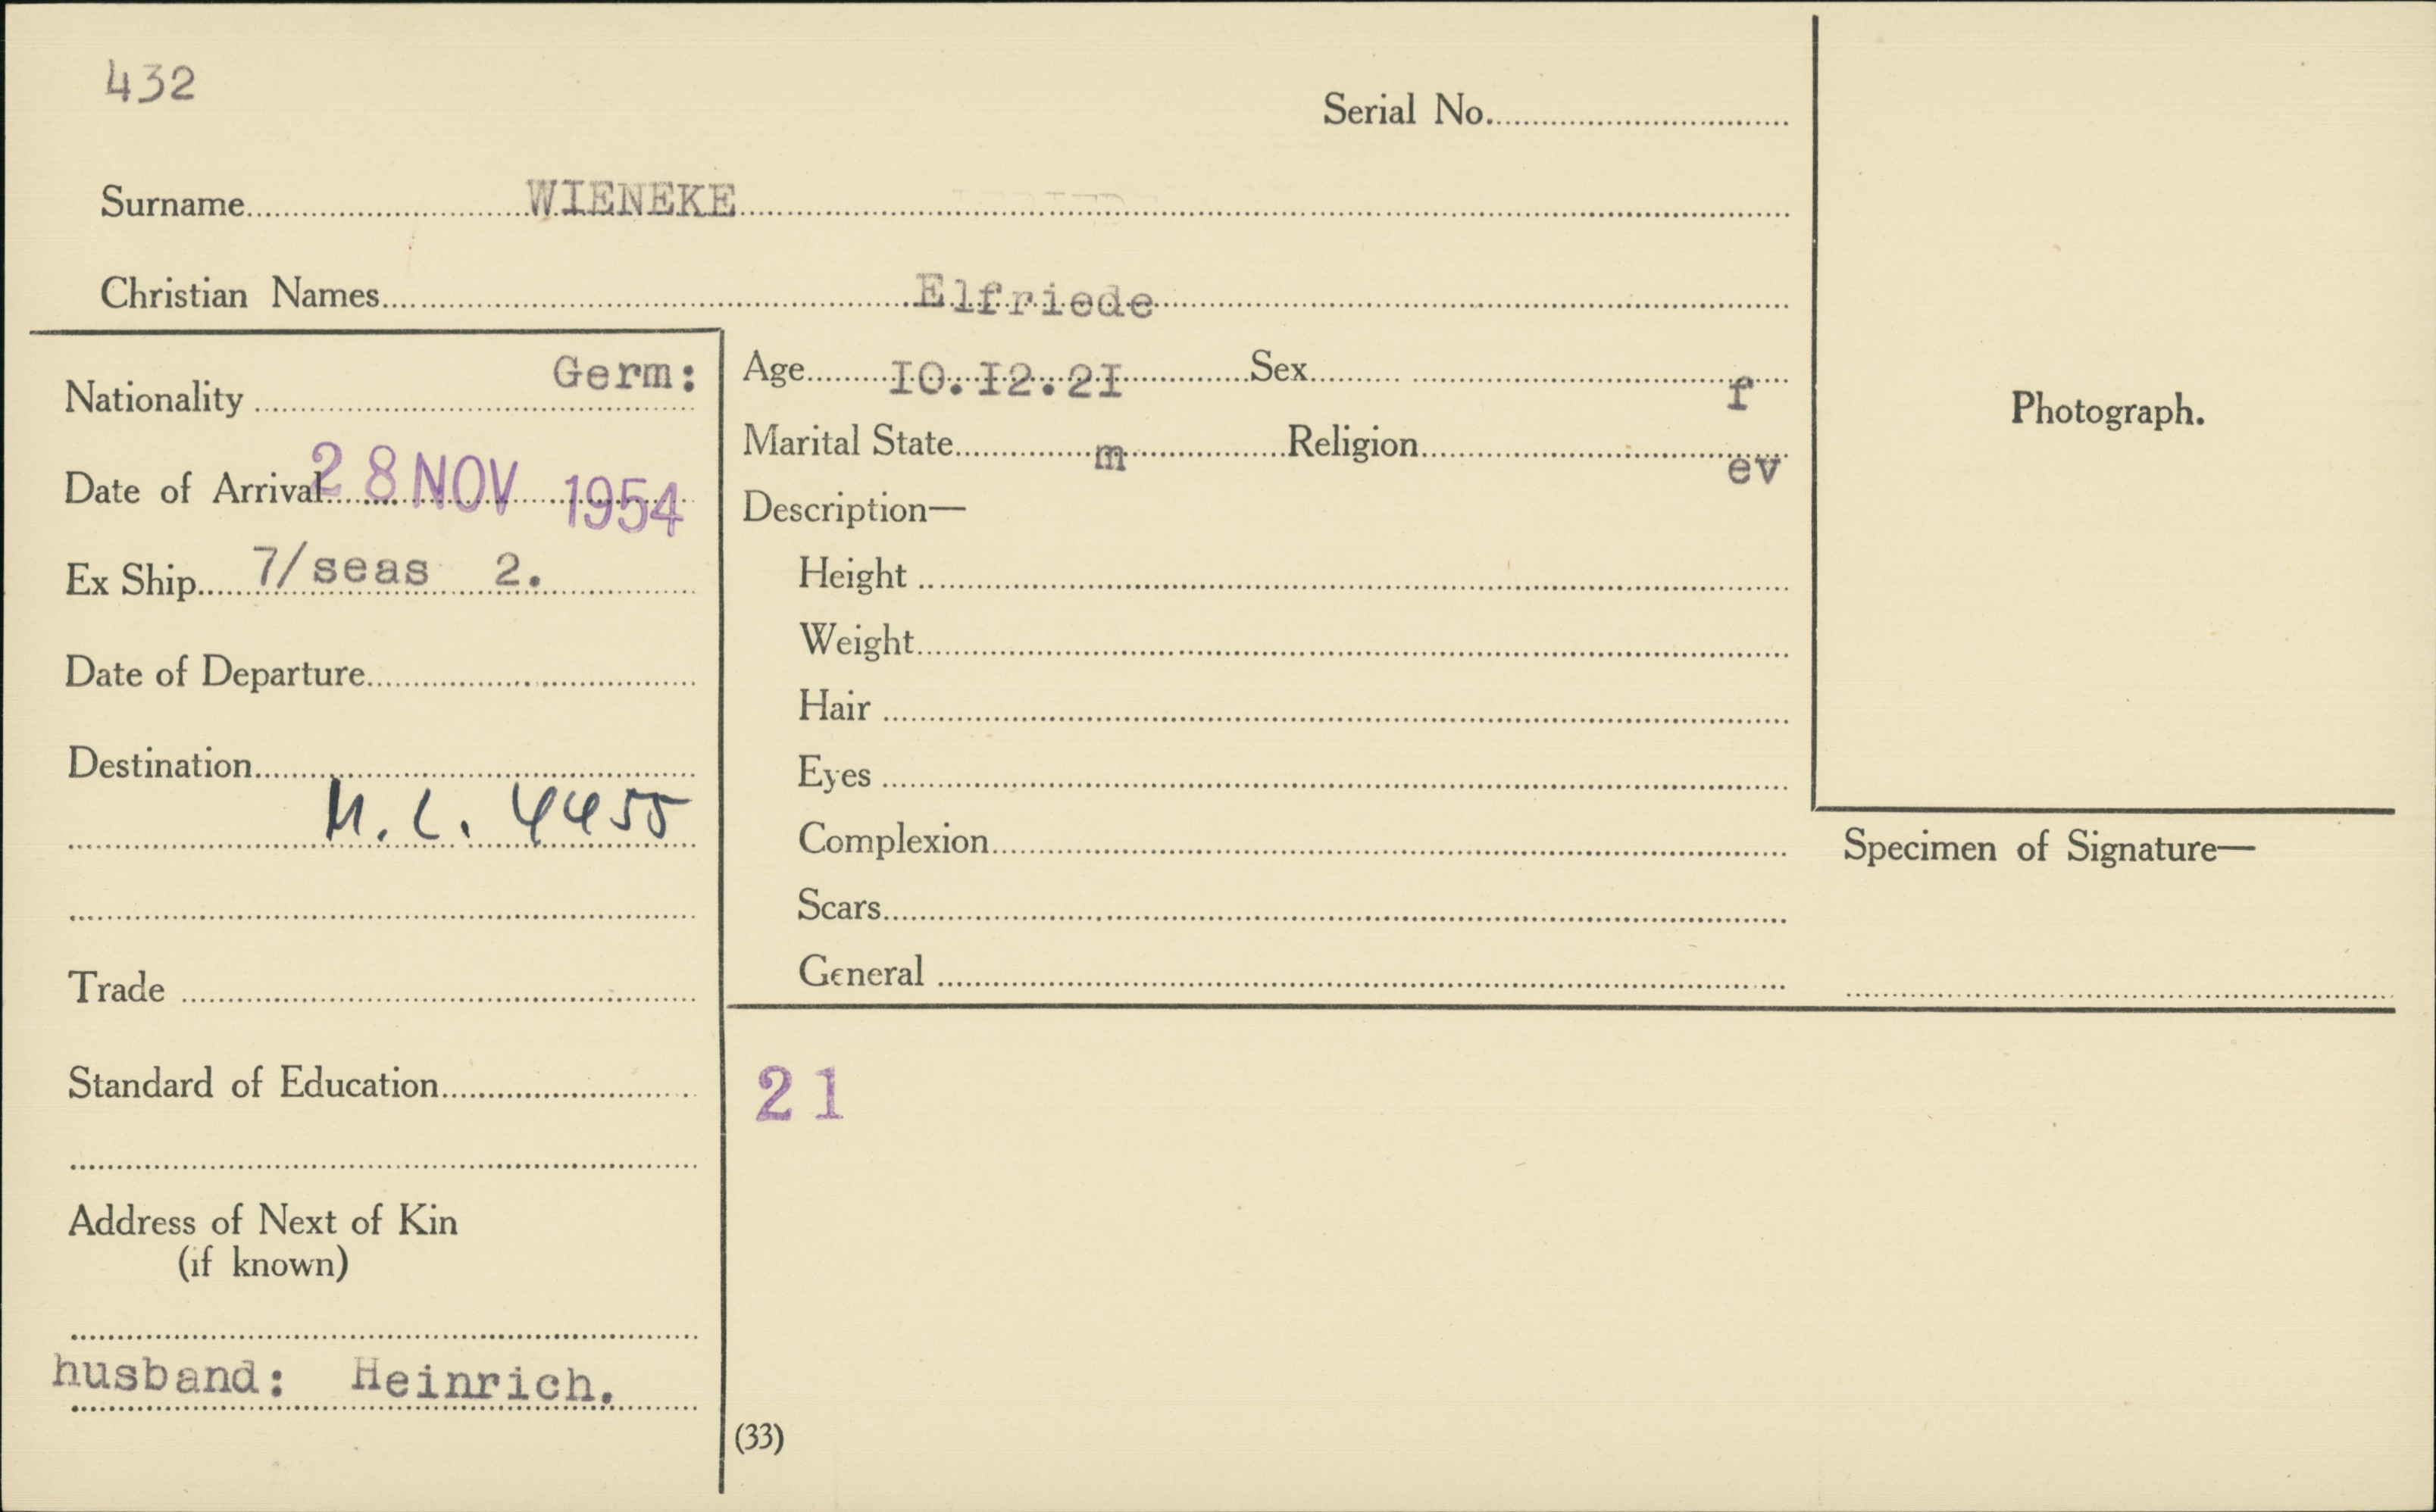 432
Serial No.
Surname WIENEKE
Christian Names Elfriede
Nationality Germ:
Date of Arrival 28 NOV 1954
Ex Ship 7/seas 2.
Date of Departure
Destination
M. L. 4455
Trade
Standard of Education
Address of Next of Kin
(if known)
husband: Heinrich.
Age IO.I2.2I Sex f
Marital State m Religion ev
Description—
Height
Weight
Hair
Eyes
Complexion
Scars
General
Photograph.
Specimen of Signature—
21
(33)